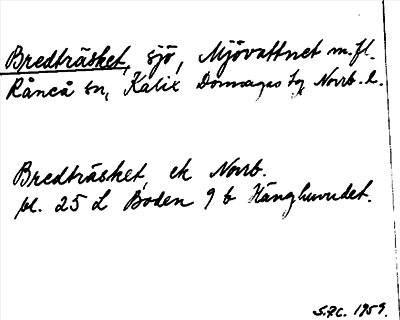 Bredträsket, sjö, Mjövattnet m.fl.
Råneå sn, Kalix Domsagas tg Norrb. l.
Bredträsket, ek Norrb.
bl. 25 L Boden 9 b Hänghuvudet.
S.F.C. 1959.